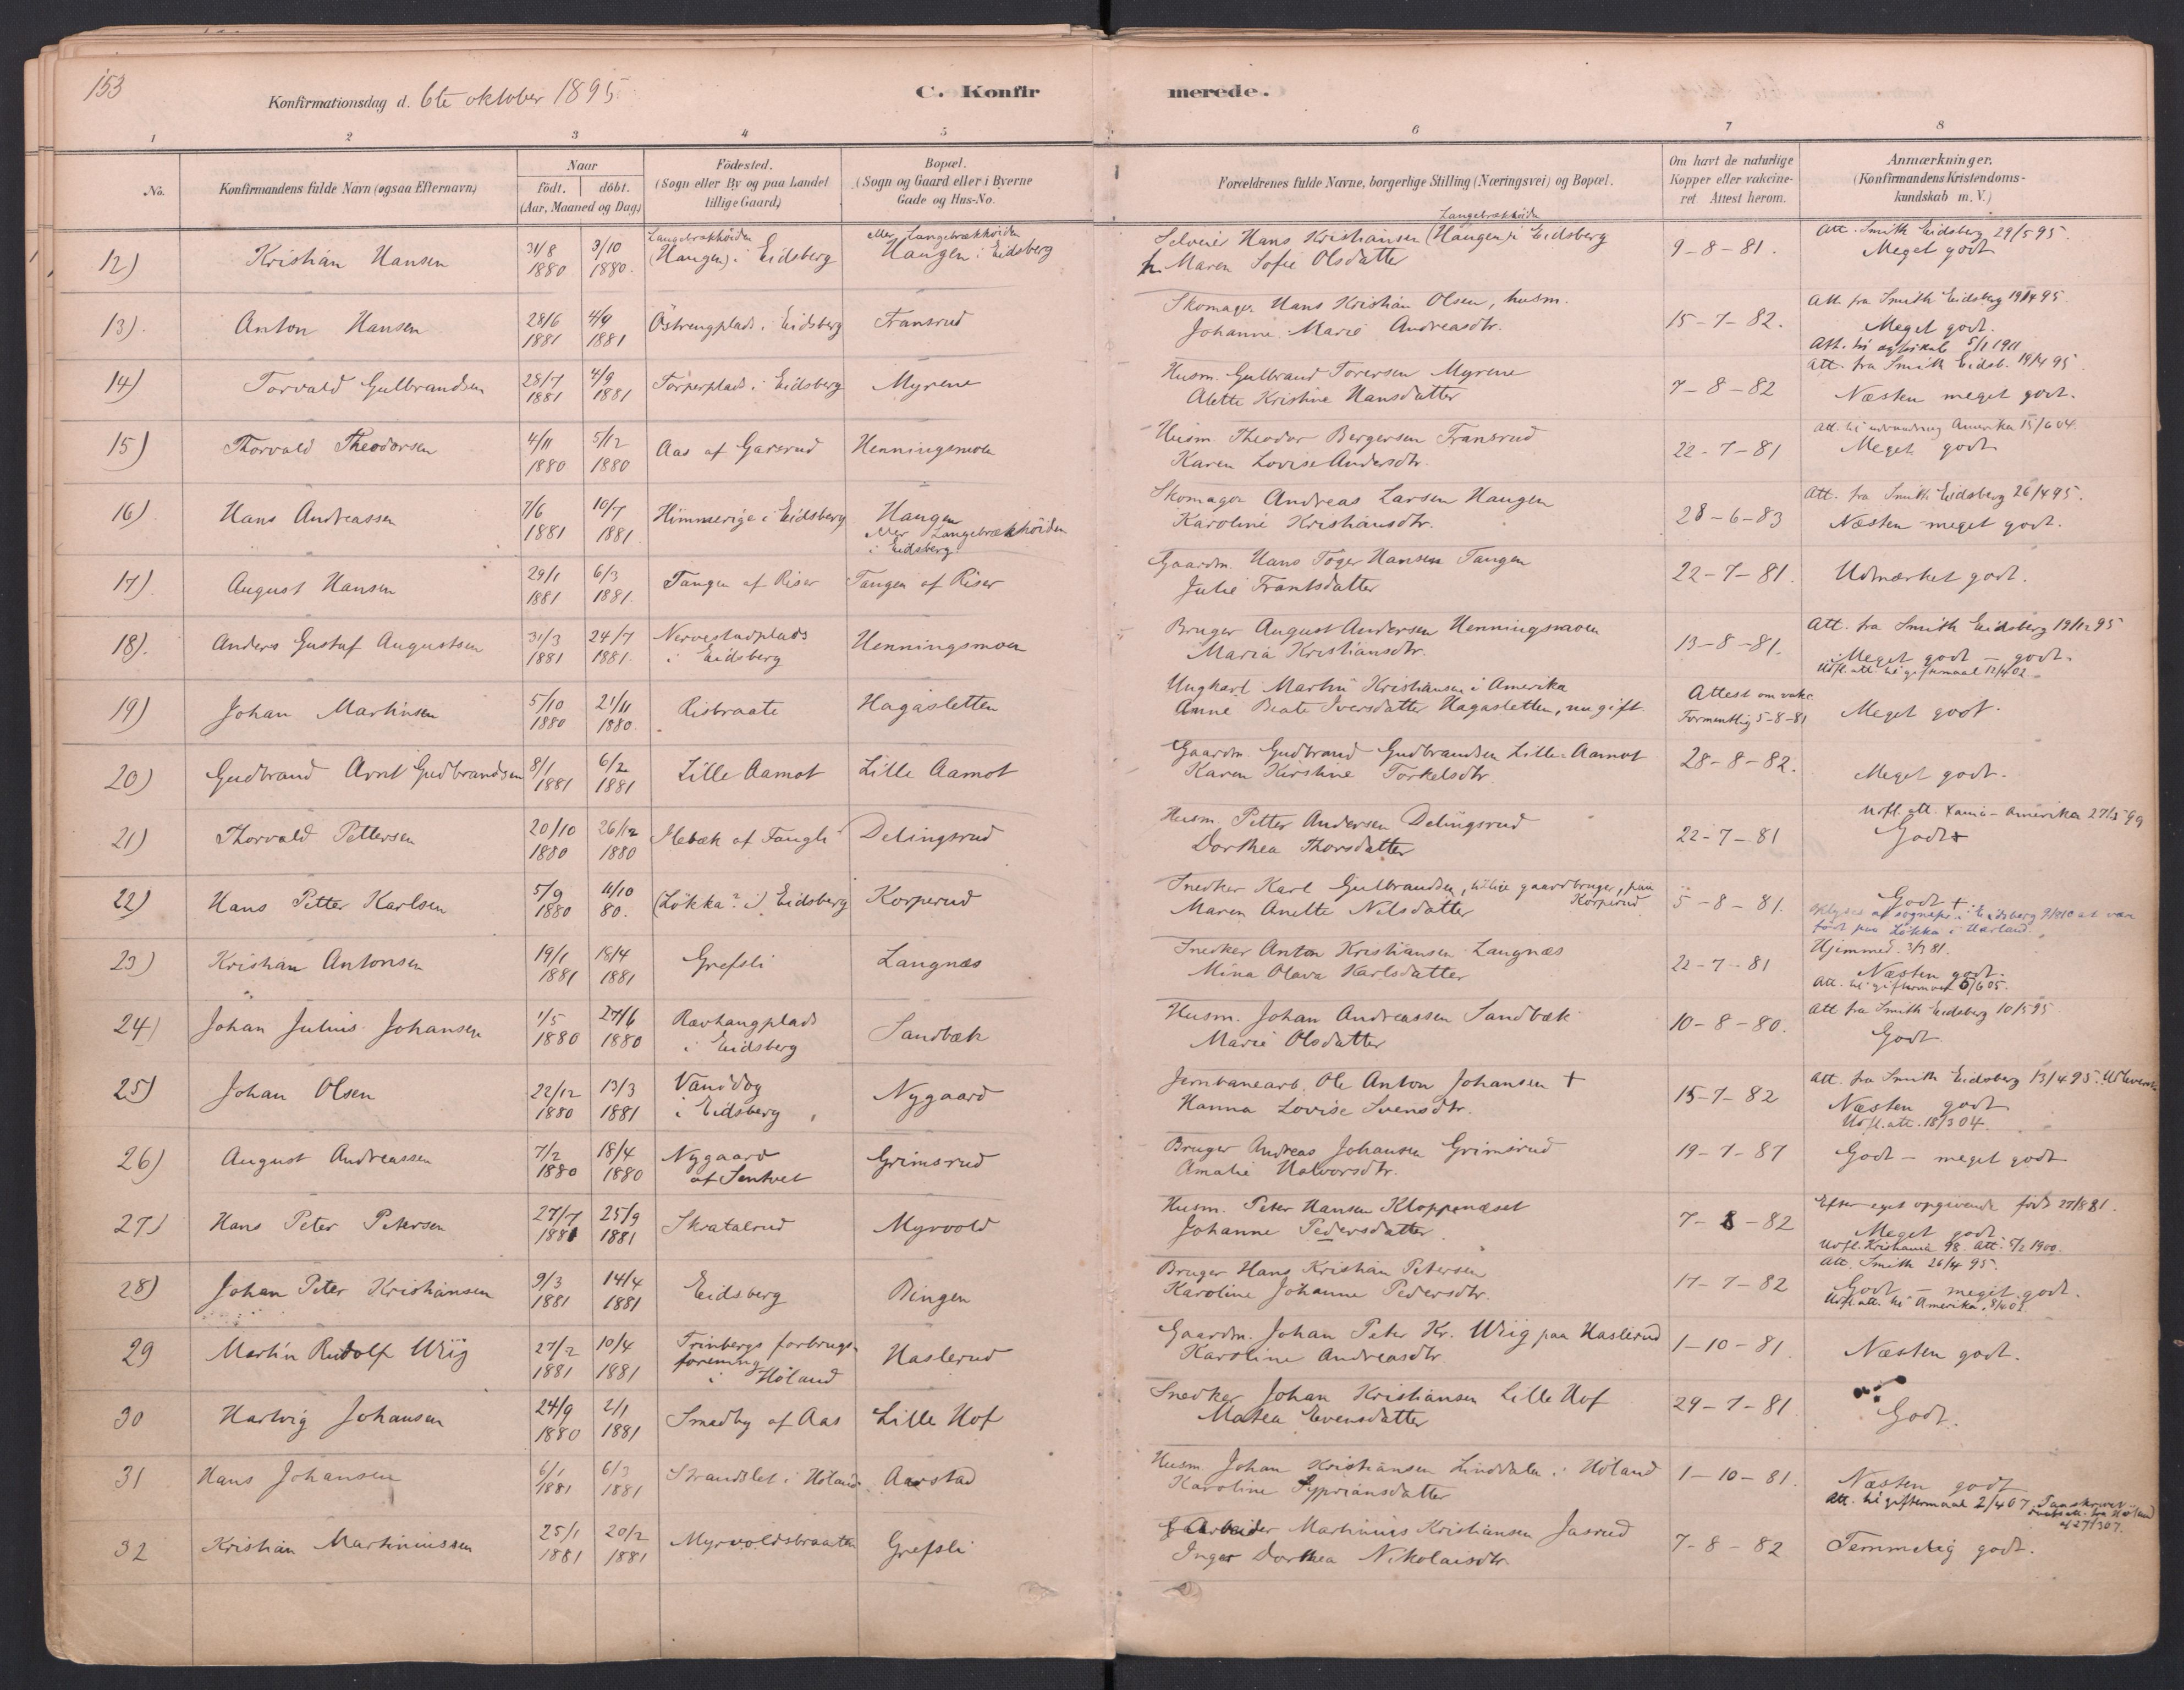 153
Konfirmationsdag d. 6te oktober 1895.
C. Konfirmerede.
1 2 3 4 5 6 7 8
No.
Konfirmandens fulde Navn (ogsaa Efternavn)
Naar
födt. döbt.
(Aar, Maaned og Dag)
Födested.
(Sogn eller By og paa Landet
tillige Gaard)
Bopæl.
(Sogn og Gaard eller i Byerne
Gade og Hus-No.
Forældrenes fulde Navne, borgerlige Stilling (Næringsvei) og Bopæl.
Om havt de naturlige
Kopper eller vakcine-
ret Attest herom.
Anmærkninger.
(Konfirmandens Kristendoms-
kundskab m. V.)
12) Kristian Hansen 31/8 1880 3/10 1880.
Langebrækhöiden
(Haugen) i Eidsberg
eller Langebrækhöiden
Haugen i Eidsberg
Langebrækhöiden
Selveier Hans Kristiansen (Haugen) i Eidsberg
h. Maren Sofie Olsdatter
9-8-81.
Att. Smith Eidsberg 29/5 95.
Meget godt
13). Anton Hansen 28/6 1881 4/9 1881 Östrengplads i Eidsberg Fransrud
Skomager Hans Kristian Olsen, husm.
Johanne Marie Andreasdtr.
15-7-82.
Att. fra Smith Eidsberg 19/4 95.
Meget godt.
5/11 1911
14) Torvald Gulbrandsen 28/7 1881 4/9 1881 Torperplads i Eidsberg Myrene
Husm. Gulbrand Torersen Myrene
Alette Kristine Hansdatter
7-8-82
Att. fra Smith Eidsb. 19/4 95
Næsten meget godt.
15) Thorvald Theodorsen 4/11 1880 5/12 1880 Aas af Garsrud Henningsmoen
Husm. Theodor Bergersen Fransrud
Karen Lovise Andersdtr.
22-7-81
Att. til udvandring Amerika 15/6 04.
Meget godt
16) Hans Andreassen 7/6 1881 10/7 1881 Himmerige i Eidsberg
Haugen
eller Langebrækhöiden
i Eidsberg
Skomager Andreas Larsen Haugen
Karoline Kristiansdtr.
28-6-83
Att. fra Smith Eidsberg 26/4 95.
Næsten meget godt.
17). August Hansen 29/1 1881 6/3 1881. Tangen af Riser Tangen af Riser
Gaardm. Hans Töger Hansen Tangen
Julie Frantsdatter
22-7-81. Udmærket godt.
18). Anders Gustaf Augustsen 31/3 1881 24/7 1881.
Nervestadplads
i Eidsberg
Henningsmoen
Bruger August Andersen Henningsmoen
Maria Kristiansdtr.
13-8-81.
Att. fra Smith Eidsberg 19/12 95
Meget godt - godt.
Udfl. att. til giftermaal 12/4 02.
19) Johan Martinsen 5/10 1880 21/11 1880. Risbraate Hagasletten
Ungkarl Martin Kristiansen i Amerika
Anne Beate Iversdatter Hagasletten, nu gift.
Attest om vakc
Formentlig 5-8-81
Meget godt.
20) Gudbrand Arnt Gudbrandsen 8/1 1881 6/2 1881 Lille Aamot Lille Aamot
Gaardm. Gudbrand Gudbrandsen Lille-Aamot
Karen Kirstine Torkelsdtr.
28-8-82. Meget godt.
21) Thorvald Pettersen 20/10 1880 26/12 1880 Mebæk af Fangli Delingsrud
Husm. Petter Andersen Delingsrud
Dorthea Thorsdatter
22-7-81
Udfl. att. Xania-Amerika 27/5 99
Godt+
22) Hans Petter Karlsen 5/9 1880 11/10 80. (Lökka? i) Eidsberg Korperud
Snedker Karl Gulbrandsen, tillige gaardbruger, paa Korperud
Maren Anette Nilsdatter
5-8-81.
Godt +
Oplyses af sognepr. i Eidsberg at være
födt paa Lökka i Varland.
23) Kristian Antonsen 19/1 1881 18/4 1881 Grefsli Langnæs
Snedker Anton Kristiansen Langnæs
Mina Olava Karlsdatter
22-7-81
Hjemmed. 3/3 81.
Næsten godt.
Att. til giftermaal 5/6 05.
24) Johan Julius Johansen 1/5 1880 27/6 1880
Ravhaugplads
i Eidsberg
Sandbæk
Husm. Johan Andreassen Sandbæk
Marie Olsdatter
10-8-80.
Att fra Smith Eidsberg 10/5 95
Godt.
25) Johan Olsen 22/12 1880 13/3 1881
Vanddog
i Eidsberg
Nygaard
Jernbanearb. Ole Anton Johansen +
Hanna Lovise Svensdtr.
15-7-82
Att. fra Smith Eidsberg 13/4 95.
Næsten godt
Udfl. att. 18/3 04.
26) August Andreassen 7/2 1880 18/4 1880
Nygaard
af Sentvet
Grimsrud
Bruger Andreas Johansen Grimsrud
Amalie Halvorsdtr.
19-7-87 Godt - meget godt
27) Hans Peter Petersen 27/7 1881 25/9 1881 Skratalrud Myrvold
Husm. Peter Hansen Kloppenæset
Johanne Pedersdatter
7-8-82
Efter eget opgivende födt 27/8 81.
Meget godt.
Udfl. Kristiania 98. Att. 5/2 1900.
28) Johan Peter Kristiansen 9/3 1881 14/4 1881 Eidsberg Bingen
Bruger Hans Kristian Petersen
Karoline Johanne Pedersdtr.
17-7-82
Att. Smith 26/4 95.
Godt - meget godt.
Udfl. att. til Amerika
29 Martin Rudolf Wiig 27/2 1881 10/4 1881
Trinbergs forbrugs-
forening
i Höland
Haslerud
Gaardm. Johan Peter Kr. Wiig paa Haslerud
Karoline Andreasdtr.
1-10-81 Næsten godt.
30 Hartvig Johansen 24/9 1880 2/1 1881 Smedby af Aas Lille Hof
Snedker Johan Kristiansen Lille Hof
Matea Evensdatter
29-7-81 Godt.
31 Hans Johansen 6/1 1881 6/3 1881 Strandslet i Höland Aarstad
Husm. Johan Kristiansen Linddalen i Höland
Karoline Sypriansdatter
1-10-81.
Næsten godt
Att. til giftermaal 2/4 07
27/3 07.
32 Kristian Martiniussen 25/1 1881 20/2 1881 Myrvoldsbraaten Grefsli
Arbeider Martinius Kristiansen Jasrud
Inger Dorthea Nikolaisdtr.
7-8-82 Temmelig godt.